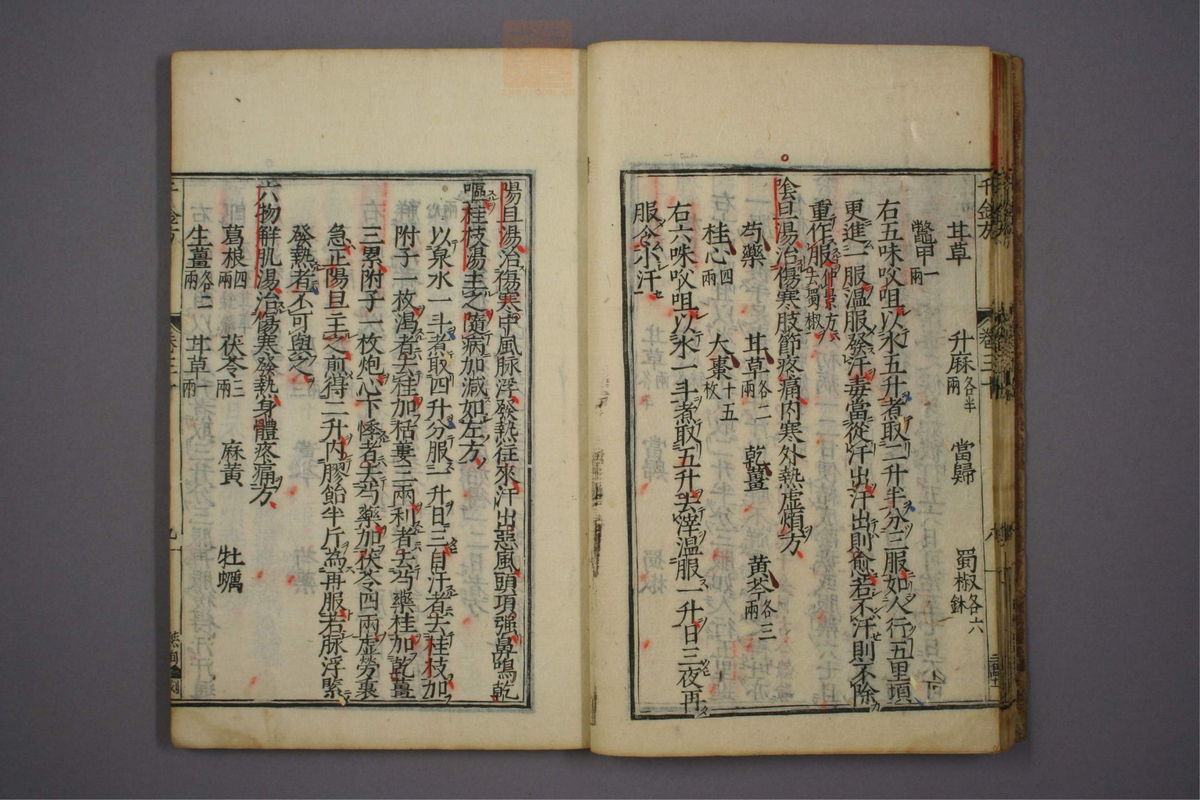 甘草　升麻各半兩　當歸　蜀椒各六銖
鼈甲一兩
右五味㕮咀以水五升煮取二升半分三服如人行五里頃
更進一服溫服發汗毒當從汗出汗出則愈若不汗則不除
重作服仲景方去蜀椒
陰旦湯治傷寒肢節疼痛內寒外熱虛煩方
芍藥　甘草各二兩　乾薑　黃芩各三兩
桂心四兩　大棗十五枚
右六味㕮咀以水一斗煮取五升去滓溫服一升日三夜再
服令小汗
陽旦湯治傷寒中風脉浮發熱往來汗出惡風頭項强鼻鳴乾
嘔桂枝湯主之隨病加減如左方
以泉水一斗煮取四升分服一升日三自汗者去桂枝加
附子一枚渴者去桂加栝蔞三兩利者去芍藥桂加乾薑
三累附子一枚炮心下悸者去芍藥加茯苓四兩虛勞裏
急正陽旦主之煎得二升內膠飴半斤為再服若脉浮緊
發熱者不可與之
六物解肌湯治傷寒發熱身體疼痛方
葛根四兩　茯苓三兩　麻黃　牡蠣
生薑各二兩　甘草一兩
千金方　卷三十